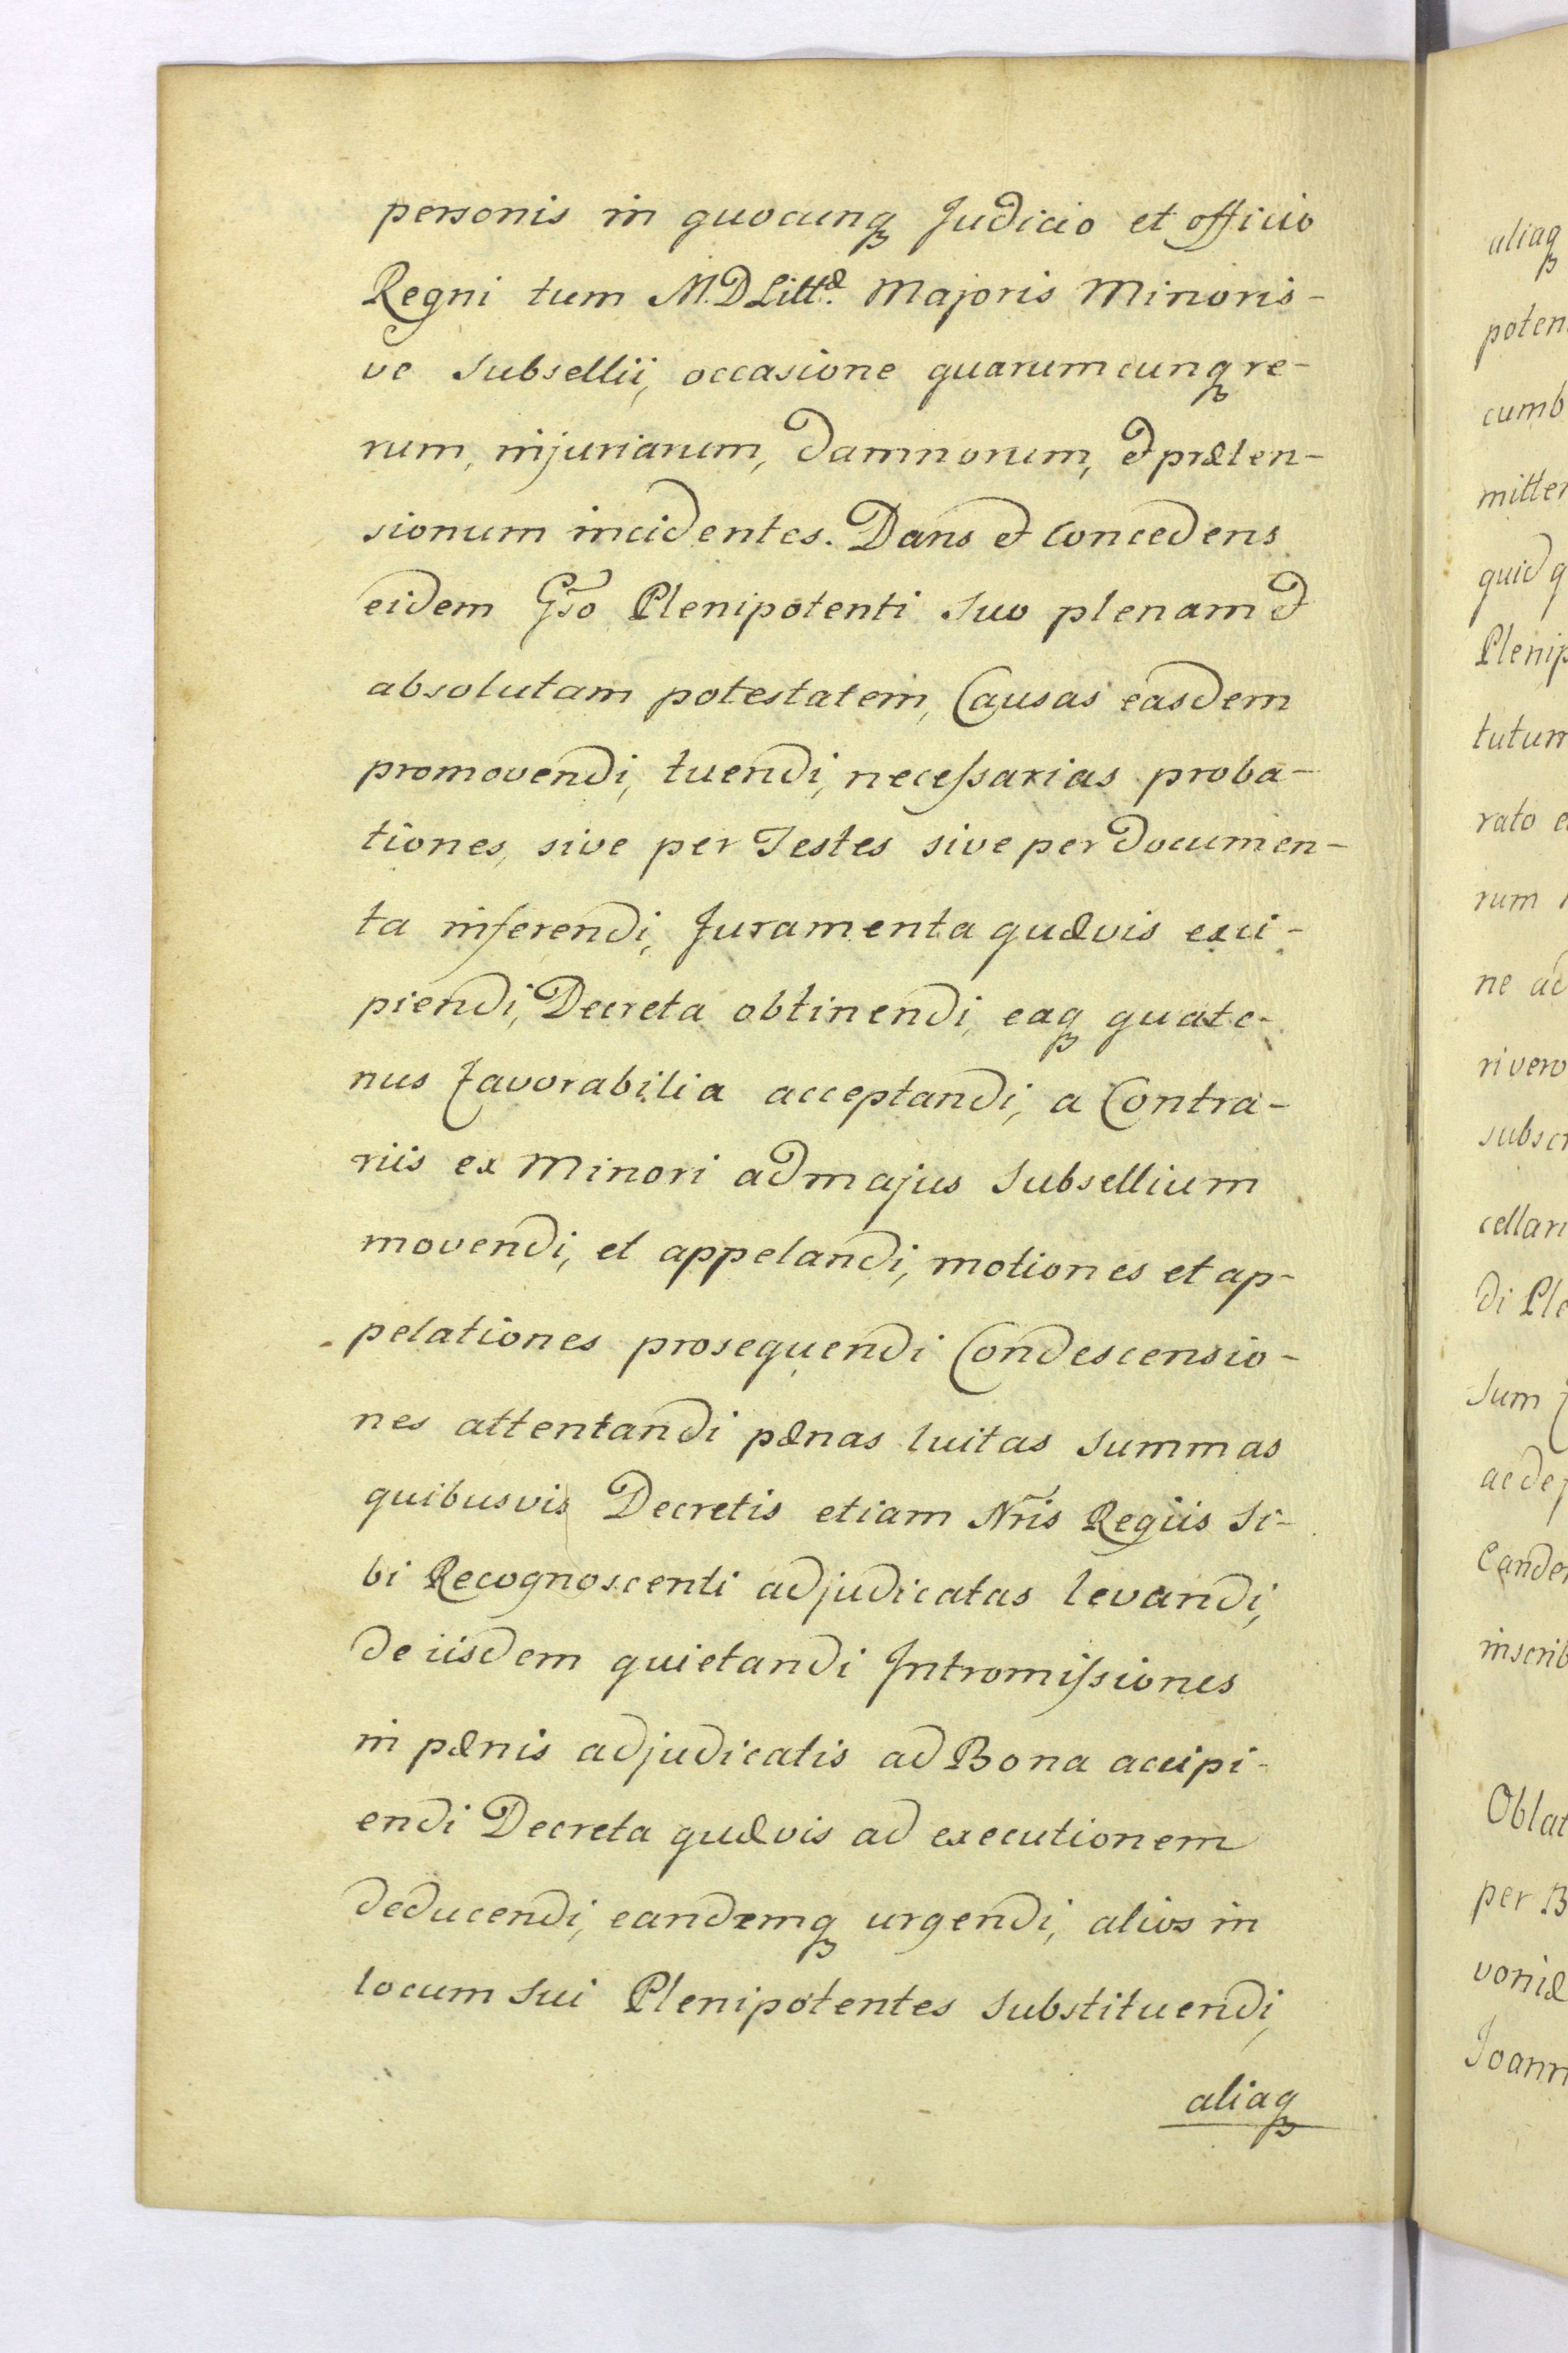 personis in quocunq Judicio et officio
Regni tum M.D Littæ. Majoris Minoris-
ve Subsellii, occasione quarumcunq re-
rum, injuriarum, damnorum, et præten-
sionum incidentes. Dans et Concedens
eidem Gso Plenipotenti Suo plenam et
absolutam potestatem, Causas easdem
promovendi, tuendi, necessarias proba-
tiones, sive per Testes sive per Documen-
ta inferendi, Juramenta quævis exci-
piendi, Decreta obtinendi, eaq quate-
nus favorabilia acceptandi, a Contra-
riis ex Minori ad majus Subsellium
movendi, et appelandi, motiones et ap-
pelationes prosequendi Condescensio-
nes attentandi pænas luitas Summas
quibusvis Decretis etiam Nris Regiis Si-
bi Recognoscenti adjudicatas levandi,
de iisdem quietandi Intromissiones
in pænis adjudicatis ad Bona accipi-
endi Decreta quævis ad executionem
deducendi, eandemq urgendi, alios in
locum Sui Plenipotentes Substituendi,
aliaq
aliaq
poten
cumb
mitter
quid q
Plenip
tutum
rato e
rum
ne ad
ri vero
subscr
cellari
di Ple
Sum
ac dep
Eander
inscrib
Oblat
per B
voniæ
Joann